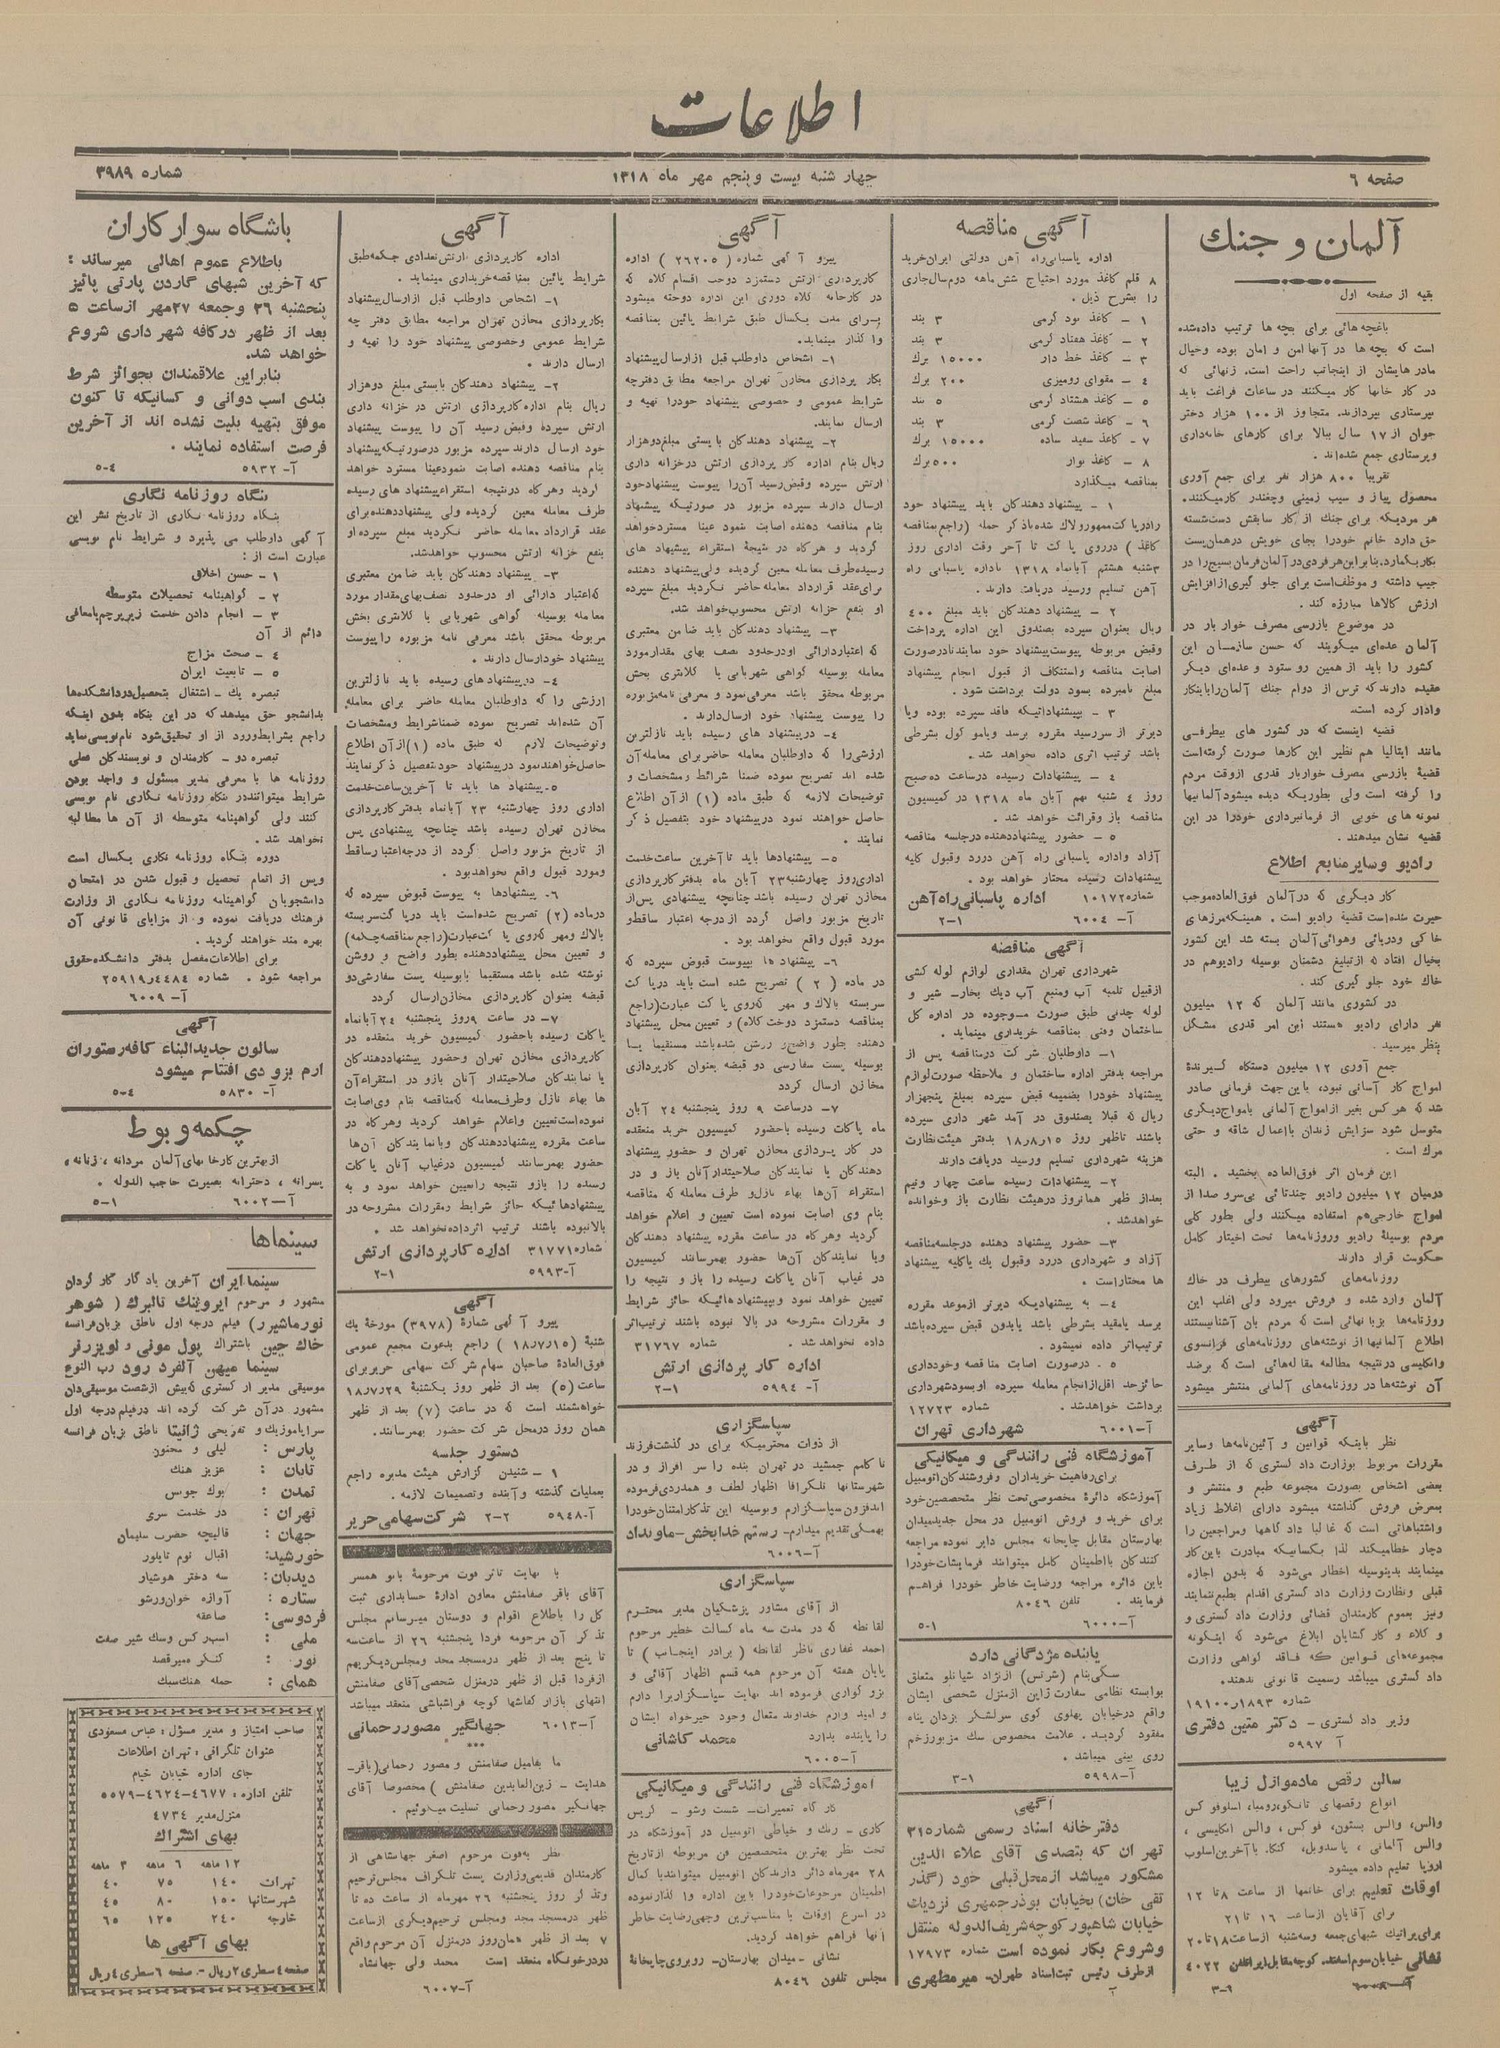 اطلاعات
صفحه ۶
چهارشنبه بیست و پنجم مهر ماه ۱۳۱۸
شماره ۳۹۸۹
آلمان و جنك
بقیه از صفحه اول
باغچه هائی برای بچه ها ترتیب داده شده
است که بچه ها در آنها امن و امان بوده و خیال
مادرهایشان از اینجانب راحت است. زنهائی که
در کارخانها کار میکنند در ساعات فراغت باید
بپرستاری بپردازند. متجاوز از ۱۰۰ هزار دختر
جوان از ۱۷ سال ببالا برای کارهای خانه‌داری
و پرستاری جمع شده‌اند.
تقریباً ۸۰۰ هزار نفر برای جمع آوری
محصول پیاز و سیب زمینی و چغندر کار میکنند.
هر مردیکه برای جنك از کار سابقش دست شسته
حق دارد خانم خود را بجای خویش در همان پست
بکار بگمارد. بنابراین هر فردی در آلمان فرمان بسیج را در
جیب داشته و موظف است برای جلوگیری از افزایش
ارزش کالاها مبارزه کند.
در موضوع بازرسی مصرف خواربار در
آلمان عده‌ای میگویند که حسن سازمان این
کشور را باید از همین رو ستود و عده‌ای دیگر
عقیده دارند که ترس از دوام جنك آلمان را باینکار
وادار کرده است.
قضیه اینست که در کشور های بیطرفی
مانند ایتالیا هم نظیر این کارها صورت گرفته است
قضیهٔ بازرسی مصرف خواربار قدری از وقت مردم
را گرفته است ولی بطوریکه دیده میشود آلمانیها
نمونه‌های خوبی از فرمانبرداری خود را در این
قضیه نشان میدهند.
رادیو و سایر منابع اطلاع
کار دیگری که در آلمان فوق‌العاده موجب
حیرت شده است قضیهٔ رادیو است. همینکه مرزهای
خاکی و دریائی و هوائی آلمان بسته شد این کشور
بخیال افتاد که از تبلیغ دشمنان بوسیله رادیو هم در
خاك خود جلوگیری کند.
در کشوری مانند آلمان که ۱۲ میلیون
نفر دارای رادیو هستند این امر قدری مشکل
بنظر میرسید.
جمع آوری ۱۲ میلیون دستگاه گیرندهٔ
امواج کار آسانی نبود، باین جهت فرمانی صادر
شد که هر کس بغیر از امواج آلمانی بامواج دیگری
متوسل شود سزایش زندان با اعمال شاقه و حتی
مرك است.
این فرمان اثر فوق‌العاده بخشید. البته
درمیان ۱۲ میلیون رادیو چندتائی بی‌سر و صدا از
امواج خارجی هم استفاده میکنند ولی بطور کلی
مردم بوسیلهٔ رادیو و روزنامه‌ها تحت اختیار کامل
حکومت قرار دارند
روزنامه‌های کشورهای بیطرف در خاك
آلمان وارد شده و فروش میرود ولی اغلب این
روزنامه‌ها بزبانهائی است که مردم بان آشنا نیستند
اطلاع آلمانیها از نوشته‌های روزنامه‌های فرانسوی
و انگلیسی در نتیجه مطالعه مقاله‌هائی است که برضد
آن نوشته‌ها در روزنامه‌های آلمانی منتشر میشود
آگهی
نظر باینکه قوانین و آئین‌نامه‌ها و سایر
مقررات مربوط بوزارت دادگستری که از طرف
بعضی اشخاص بصورت مجموعه طبع و منتشر و
بمعرض فروش گذاشته میشود دارای اغلاط زیاد
و اشتباهاتی است که غالباً دادگاهها و مراجعین را
دچار خطا میکند لذا بکسانیکه مبادرت باین کار
مینمایند بدینوسیله اخطار می‌شود که بدون اجازه
قبلی و نظارت وزارت دادگستری اقدام بطبع ننمایند
و نیز بعموم کارمندان قضائی وزارت دادگستری و
وکلاء و کارگشایان ابلاغ می‌شود که اینگونه
مجموعه‌های قوانین که فاقد گواهی وزارت
دادگستری میباشد رسمیت قانونی ندهند.
شماره ۱۹۱۰۰ر۱۸۹۳
وزیر دادگستری - دکتر متین دفتری
آ ۵۹۹۷
سالن رقص مادموازل زیبا
انواع رقصهای تانگو، رومبا، اسلوفوکس
والس، والس بستون، فوکس، والس انگلیسی،
والس آلمانی، پاسدوبل، کنگا. با آخرین اسلوب
اروپا تعلیم داده میشود
اوقات تعلیم برای خانمها از ساعت ۸ تا ۱۲
برای آقایان از ساعت ۱۶ تا ۲۱
برای پراتیك شبهای جمعه و سه‌شنبه از ساعت ۱۸ تا ۲۰
نشانی خیابان سوم اسفند. کوچه مقابل ایر تلفن ۴۰۲۲
۳-۶
آگهی مناقصه
اداره پاسبانی راه آهن دولتی ایران خرید
۸ قلم کاغذ مورد احتیاج شش ماهه دوم سال جاری
را بشرح ذیل.
۱ - کاغذ نود گرمی ۳ بند
۲ - کاغذ هفتاد گرمی ۳ بند
۳ - کاغذ خط دار ۱۵۰۰۰ برك
۴ - مقوای رومیزی ۲۰۰ برك
۵ - کاغذ هشتاد گرمی ۵ بند
۶ - کاغذ شصت گرمی ۳ بند
۷ - کاغذ سفید ساده ۱۵۰۰۰ برك
۸ - کاغذ نوار ۵۰۰ برك
بمناقصه میگذارد
۱ - پیشنهاد دهندگان باید پیشنهاد خود
را در پاکت ممهور و لاك شده با ذکر جمله (راجع بمناقصه
کاغذ) در روی پاکت تا آخر وقت اداری روز
۳شنبه هشتم آبانماه ۱۳۱۸ باداره پاسبانی راه
آهن تسلیم و رسید دریافت دارند.
۲ - پیشنهاد دهندگان باید مبلغ ۴۰۰
ریال بعنوان سپرده بصندوق این اداره پرداخت
و قبض مربوطه پیوست پیشنهاد خود نمایند تا در صورت
اصابت مناقصه و استنکاف از قبول انجام پیشنهاد
مبلغ نامبرده بسود دولت برداشت شود.
۳ - بپیشنهاداتیکه فاقد سپرده بوده و یا
دیرتر از سر رسید مقرره برسد و یا موکول بشرطی
باشد ترتیب اثری داده نخواهد شد.
۴ - پیشنهادات رسیده در ساعت ده صبح
روز ۴ شنبه نهم آبان ماه ۱۳۱۸ در کمیسیون
مناقصه باز و قرائت خواهد شد.
۵ - حضور پیشنهاد دهنده در جلسه مناقصه
آزاد و اداره پاسبانی راه آهن در رد و قبول کلیه
پیشنهادات رسیده مختار خواهد بود.
شماره ۱۰۱۷۲ اداره پاسبانی راه‌آهن
آ- ۶۰۰۴ ۲-۱
آگهی مناقصه
شهرداری تهران مقداری لوازم لوله کشی
از قبیل تلمبه آب و منبع آب دیك بخار- شیر و
لوله چدنی طبق صورت موجوده در اداره کل
ساختمان و فنی بمناقصه خریداری مینماید.
۱- داوطلبان شرکت در مناقصه پس از
مراجعه بدفتر اداره ساختمان و ملاحظه صورت لوازم
پیشنهاد خود را بضمیمه قبض سپرده بمبلغ پنجهزار
ریال که قبلا بصندوق در آمد شهرداری سپرده
باشند تا ظهر روز ۱۸٫۸٫۱۵ بدفتر هیئت نظارت
هزینه شهرداری تسلیم و رسید دریافت دارند
۲- پیشنهادات رسیده ساعت چهار و نیم
بعد از ظهر همانروز در هیئت نظارت باز و خوانده
خواهد شد.
۳- حضور پیشنهاد دهنده در جلسه مناقصه
آزاد و شهرداری در رد و قبول یك یا کلیه پیشنهاد
ها مختار است.
۴- به پیشنهادیکه دیرتر از موعد مقرره
برسد یا مقید بشرطی باشد یا بدون قبض سپرده باشد
ترتیب اثر داده نمیشود.
۵. در صورت اصابت مناقصه و خودداری
حائز حد اقل از انجام معامله سپرده او بسود شهرداری
برداشت خواهد شد. شماره ۱۲۷۲۳
آ-۶۰۰۱ شهرداری تهران
آموزشگاه فنی رانندگی و میکانیکی
برای رفاهیت خریداران و فروشندگان اتومبیل
آموزشگاه دائرهٔ مخصوصی تحت نظر متخصصین خود
برای خرید و فروش اتومبیل در محل جدید میدان
بهارستان مقابل چاپخانه مجلس دایر نموده مراجعه
کنندگان با اطمینان کامل میتوانند فرمایشات خود را
باین دائره مراجعه و رضایت خاطر خود را فراهم
فرمایند. تلفن ۸۰۴۶
آ-۶۰۰۰ ۵-۱
یابنده مژدگانی دارد
سگی بنام (شرنس) از نژاد شیانلو متعلق
بوابسته نظامی سفارت ژاپن از منزل شخصی ایشان
واقع در خیابان پهلوی کوی سرلشگر یزدان پناه
مفقود گردیده. علامت مخصوص سك مزبور زخم
روی بینی میباشد.
آ-۵۹۹۸ ۳-۱
آگهی
دفترخانه اسناد رسمی شماره ۳۱۵
تهران که بتصدی آقای علاء الدین
مشکور میباشد از محل قبلی خود (گذر
تقی خان) بخیابان بوذرجمهری نزدیك
خیابان شاهپور کوچه شریف‌الدوله منتقل
و شروع بکار نموده است شماره ۱۷۹۷۳
از طرف رئیس ثبت اسناد طهران- میرمطهری
آ
آگهی
پیرو آگهی شماره (۲۶۲۰۵) اداره
کارپردازی ارتش دستمزد دوخت اقسام کلاه که
در کارخانه کلاه دوزی این اداره دوخته میشود
برای مدت یکسال طبق شرایط پائین بمناقصه
واگذار مینماید.
۱- اشخاص داوطلب قبل از ارسال پیشنهاد
بکار پردازی مخازن تهران مراجعه مطابق دفترچه
شرایط عمومی و خصوصی پیشنهاد خود را تهیه و
ارسال نمایند.
۲- پیشنهاد دهندگان بایستی مبلغ دو هزار
ریال بنام اداره کارپردازی ارتش در خزانه داری
ارتش سپرده و قبض رسید آن را پیوست پیشنهاد خود
ارسال دارند سپرده مزبور در صورتیکه پیشنهاد
بنام مناقصه دهنده اصابت ننمود عیناً مسترد خواهد
گردید و هرگاه در نتیجهٔ استقراء پیشنهاد های
رسیده طرف معامله معین گردیده ولی پیشنهاد دهنده
برای عقد قرارداد معامله حاضر نگردید مبلغ سپرده
او بنفع خزانه ارتش محسوب خواهد شد.
۳- پیشنهاد دهندگان باید ضامن معتبری
که اعتبار دارائی او در حدود نصف بهای مقدار مورد
معامله بوسیله گواهی شهربانی یا کلانتری بخش
مربوطه محقق باشد معرفی نمود و معرفی نامه مزبوره
را پیوست پیشنهاد خود ارسال دارند.
۴- در پیشنهاد های رسیده باید نازلترین
ارزشی را که داوطلبان معامله حاضر برای معامله آن
شده اند تصریح نموده ضمناً شرائط و مشخصات و
توضیحات لازمه که طبق ماده (۱) از آن اطلاع
حاصل خواهند نمود در پیشنهاد خود بتفصیل ذکر
نمایند.
۵- پیشنهادها باید تا آخرین ساعت خدمت
اداری روز چهارشنبه ۲۳ آبان ماه بدفتر کارپردازی
مخازن تهران رسیده باشد چنانچه پیشنهادی پس از
تاریخ مزبور واصل گردد از درجه اعتبار ساقط و
مورد قبول واقع نخواهد بود.
۶- پیشنهاد ها به پیوست قبوض سپرده که
در ماده (۲) تصریح شده است باید در پاکت
سربسته بالاك و مهر که روی پاکت عبارت (راجع
بمناقصه دستمزد دوخت کلاه) و تعیین محل پیشنهاد
دهنده بطور واضح و روشن شده باشد مستقیما یا
بوسیله پست سفارسی دو قبضه بعنوان کارپردازی
مخازن ارسال گردد
۷- در ساعت ۹ روز پنجشنبه ۲۴ آبان
ماه پاکات رسیده با حضور کمیسیون خرید منعقده
در کار پردازی مخازن تهران و حضور پیشنهاد
دهندگان یا نمایندگان صلاحیتدار آنان باز و در
استقراء آن‌ها بهاء نازل و طرف معامله که مناقصه
بنام وی اصابت نموده است تعیین و اعلام خواهد
گردید و هرگاه در ساعت مقرره پیشنهاد دهندگان
و یا نمایندگان آن‌ها حضور بهم نرسانند کمیسیون
در غیاب آنان پاکات رسیده را باز و نتیجه را
تعیین خواهد نمود و بپیشنهاد هائیکه حائز شرایط
و مقررات مشروحه در بالا نبوده باشند ترتیب اثر
داده نخواهد شد. شماره ۳۱۷۶۷
اداره کار پردازی ارتش
آ- ۵۹۹۴ ۲-۱
سپاسگزاری
از ذوات محترمیکه برای در گذشت فرزند
ناکامم جمشید در تهران بنده را سر افراز و در
شهرستانها تلگرافاً اظهار لطف و همدردی فرموده
اند فزون سپاسگزارم و بوسیله این تذکار امتنان خود را
بهمگی تقدیم میدارم- رستم خدابخش- ماونداد
آ-۶۰۰۶
سپاسگزاری
از آقای مشاور پزشکیان مدیر محترم
لقانطه که در مدت سه ماه کسالت خطیر مرحوم
احمد غفاری ناظر لقانطه (برادر اینجانب) تا
پایان هفته آن مرحوم همه قسم اظهار آقائی و
بزرگواری فرموده اند نهایت سپاسگزاری را دارم
و امیدوارم خداوند متعال وجود خیرخواه ایشان
را پاینده بدارد محمد کاشانی
آ-۶۰۰۵
آموزشگاه فنی رانندگی و میکانیکی
کارگاه تعمیرات- شست وشو - گریس
کاری - رنك و خیاطی اتومبیل در آموزشگاه در
تحت نظر بهترین متخصصین فن مربوطه از تاریخ
۲۸ مهرماه دائر دارندگان اتومبیل میتوانند با کمال
اطمینان مرجوعات خود را باین اداره واگذار نموده
در اسرع اوقات با مناسب‌ترین وجهی رضایت خاطر
آنها فراهم خواهد گردید.
نشانی - میدان بهارستان- روبروی چاپخانهٔ
مجلس تلفون ۸۰۴۶
آگهی
اداره کارپردازی ارتش تعدادی چکمه طبق
شرایط پائین بمناقصه خریداری مینماید.
۱- اشخاص داوطلب قبل از ارسال پیشنهاد
بکارپردازی مخازن تهران مراجعه مطابق دفترچه
شرایط عمومی و خصوصی پیشنهاد خود را تهیه و
ارسال دارند.
۲- پیشنهاد دهندگان بایستی مبلغ دو هزار
ریال بنام اداره کارپردازی ارتش در خزانه داری
ارتش سپرده و قبض رسید آن را پیوست پیشنهاد
خود ارسال دارند سپرده مزبور در صورتیکه پیشنهاد
بنام مناقصه دهنده اصابت ننمود عیناً مسترد خواهد
گردید و هرگاه در نتیجه استقراء پیشنهاد های رسیده
طرف معامله معین گردیده ولی پیشنهاد دهنده برای
عقد قرارداد معامله حاضر نگردید مبلغ سپرده او
بنفع خزانه ارتش محسوب خواهد شد.
۳- پیشنهاد دهندگان باید ضامن معتبری
که اعتبار دارائی او در حدود نصف بهای مقدار مورد
معامله بوسیله گواهی شهربانی یا کلانتری بخش
مربوطه محقق باشد معرفی نامه مزبوره را پیوست
پیشنهاد خود ارسال دارند.
۴- در پیشنهاد های رسیده باید نازلترین
ارزشی را که داوطلبان معامله حاضر برای معامله
آن شده‌اند تصریح نموده ضمناً شرایط و مشخصات
و توضیحات لازم که طبق ماده (۱) از آن اطلاع
حاصل خواهند نمود در پیشنهاد خود بتفصیل ذکر نمایند
۵- پیشنهاد ها باید تا آخرین ساعت خدمت
اداری روز چهارشنبه ۲۳ آبانماه بدفتر کارپردازی
مخازن تهران رسیده باشد چنانچه پیشنهادی پس
از تاریخ مزبور واصل گردد از درجه اعتبار ساقط
و مورد قبول واقع نخواهد بود.
۶- پیشنهادها به پیوست قبوض سپرده که
در ماده (۲) تصریح شده است باید در پاکت سربسته
بالاك و مهر که روی پاکت عبارت (راجع بمناقصه چکمه)
و تعیین محل پیشنهاد دهنده بطور واضح و روشن
نوشته شده باشد مستقیما یا بوسیله پست سفارشی دو
قبضه بعنوان کارپردازی مخازن ارسال گردد
۷- در ساعت ۹ روز پنجشنبه ۲۴ آبانماه
پاکات رسیده با حضور کمیسیون خرید منعقده در
کارپردازی مخازن تهران و حضور پیشنهاد دهندگان
یا نمایندگان صلاحیتدار آنان باز و در استقراء آن
ها بهاء نازل و طرف معامله که مناقصه بنام وی اصابت
نموده است تعیین و اعلام خواهد گردید و هرگاه در
ساعت مقرره پیشنهاد دهندگان و یا نمایندگان آن‌ها
حضور بهم نرسانند کمیسیون در غیاب آنان پاکات
رسیده را باز و نتیجه را تعیین خواهد نمود و به
پیشنهادهائیکه حائز شرایط و مقررات مشروحه در
بالا نبوده باشند ترتیب اثر داده نخواهد شد.
شماره ۳۱۷۷۱ اداره کارپردازی ارتش
آ-۵۹۹۳ ۲-۱
آگهی
پیرو آگهی شمارهٔ (۳۹۷۸) مورخهٔ یك
شنبهٔ (۱۸٫۷٫۱۵) راجع بدعوت مجمع عمومی
فوق‌العادهٔ صاحبان سهام شرکت سهامی حریر برای
ساعت (۵) بعد از ظهر روز یکشنبهٔ ۱۸٫۷٫۲۹
خواهشمند است که در ساعت (۷) بعد از ظهر
همان روز در محل شرکت حضور بهمرسانند.
دستور جلسه
۱ - شنیدن گزارش هیئت مدیره راجع
بعملیات گذشته و آینده و تصمیمات لازمه.
آ-۵۹۴۸ ۲-۲ شرکت سهامی حریر
با نهایت تاثر فوت مرحومهٔ بانو همسر
آقای باقر صفامنش معاون ادارهٔ حسابداری ثبت
کل را باطلاع اقوام و دوستان میرسانم مجلس
تذکر آن مرحومه فردا پنجشنبه ۲۶ از ساعت سه
تا پنج بعد از ظهر در مسجد مجد و مجلس دیگر بهم
از فردا قبل از ظهر در منزل شخصی آقای صفامنش
انتهای بازار کفاشها کوچه فراشباشی منعقد میباشد
آ-۶۰۱۳ جهانگیر مصور رحمانی
***
ما بفامیل صفامنش و مصور رحمانی (باقر-
هدایت - زین‌العابدین صفامنش) مخصوصا آقای
جهانگیر مصور رحمانی تسلیت میگوئیم.
نظر بفوت مرحوم اصغر جهانشاهی از
کارمندان قدیمی وزارت پست تلگراف مجلس ترحیم
و تذکر روز پنجشنبه ۲۶ مهرماه از ساعت ده تا
ظهر در مسجد مجد و مجلس ترحیم دیگری از ساعت
۷ بعد از ظهر همان روز در منزل آن مرحوم واقع
در درخونگاه منعقد است محمد ولی جهانشاه
آ-۶۰۰۷
باشگاه سوارکاران
باطلاع عموم اهالی میرساند:
که آخرین شبهای گاردن پارتی پائیز
پنجشنبه ۲۶ و جمعه ۲۷ مهر از ساعت ۵
بعد از ظهر در کافه شهرداری شروع
خواهد شد.
بنابراین علاقمندان بجوائز شرط
بندی اسب دوانی و کسانیکه تا کنون
موفق بتهیه بلیت نشده اند از آخرین
فرصت استفاده نمایند.
آ- ۵۹۳۲ ۵-۴
بنگاه روزنامه نگاری
بنگاه روزنامه نگاری از تاریخ نشر این
آگهی داوطلب می پذیرد و شرایط نام نویسی
عبارت است از:
۱ - حسن اخلاق
۲ - گواهینامه تحصیلات متوسطه
۳ - انجام دادن خدمت زیر پرچم یا معافی
دائم از آن
۴ - صحت مزاج
۵ - تابعیت ایران
تبصره یك - اشتغال بتحصیل در دانشکده‌ها
بدانشجو حق میدهد که در این بنگاه بدون اینکه
راجع بشرایط ورود از او تحقیق شود نام‌نویسی نماید
تبصره دو - کارمندان و نویسندگان فعلی
روزنامه ها با معرفی مدیر مسئول و واجد بودن
شرایط میتوانند در بنگاه روزنامه نگاری نام نویسی
کنند ولی گواهینامه متوسطه از آن ها مطالبه
نخواهد شد.
دوره بنگاه روزنامه نگاری یکسال است
و پس از اتمام تحصیل و قبول شدن در امتحان
دانشجویان گواهینامه روزنامه نگاری از وزارت
فرهنك دریافت نموده و از مزایای قانونی آن
بهره مند خواهند گردید.
برای اطلاعات مفصل بدفتر دانشکده حقوق
مراجعه شود. شماره ۲۵۹۱۹ر۴۴۸۴
آ- ۶۰۰۹
آگهی
سالون جدیدالبناء کافه رستوران
ارم بزودی افتتاح میشود
آ- ۵۸۳۰ ۵-۴
چکمه و بوط
از بهترین کارخانهای آلمان مردانه، زنانه،
پسرانه، دخترانه بصیرت حاجب الدوله.
آ-۶۰۰۲ ۵-۱
سینماها
سینما ایران آخرین یادگار کارگردان
مشهور و مرحوم ایروینك تالبرك (شوهر
نورماشیرر) فیلم درجه اول ناطق بزبان فرانسه
خاك چین باشتراك پول مونی و لویزرنر
سینما میهن آلفرد رود رب النوع
موسیقی مدیر ارکستری که بیش از شصت موسیقی‌دان
مشهور در آن شرکت کرده اند در فیلم درجه اول
سراپا موزیك و تفریحی ژانیتا ناطق بزبان فرانسه
پارس: لیلی و مجنون
تابان: عزیز هنك
تمدن: بوك جونس
تهران: در خدمت سری
جهان: قالیچه حضرت سلیمان
خورشید: اقبال نوم تایلور
دیدبان: سه دختر هوشیار
ستاره: آوازه خوان ورشو
فردوسی: صاعقه
ملی: اسب رکس و سك شیر صفت
نور: کنگر میرقصد
همای: حمله هنك سبك
صاحب امتیاز و مدیر مسؤل: عباس مسعودی
عنوان تلگرافی: تهران اطلاعات
جای اداره خیابان خیام
تلفن اداره: ۴۶۷۷-۴۶۲۴-۵۵۷۹
منزل مدیر ۴۷۳۴
بهای اشتراك
۱۲ ماهه ۶ ماهه ۳ ماهه
تهران ۱۴۰ ۷۵ ۴۰
شهرستانها ۱۵۰ ۸۰ ۴۵
خارجه ۲۴۰ ۱۲۵ ۶۵
بهای آگهی ها
صفحه ۴ سطری ۲ ریال - صفحه ۶ سطری ۴ ریال